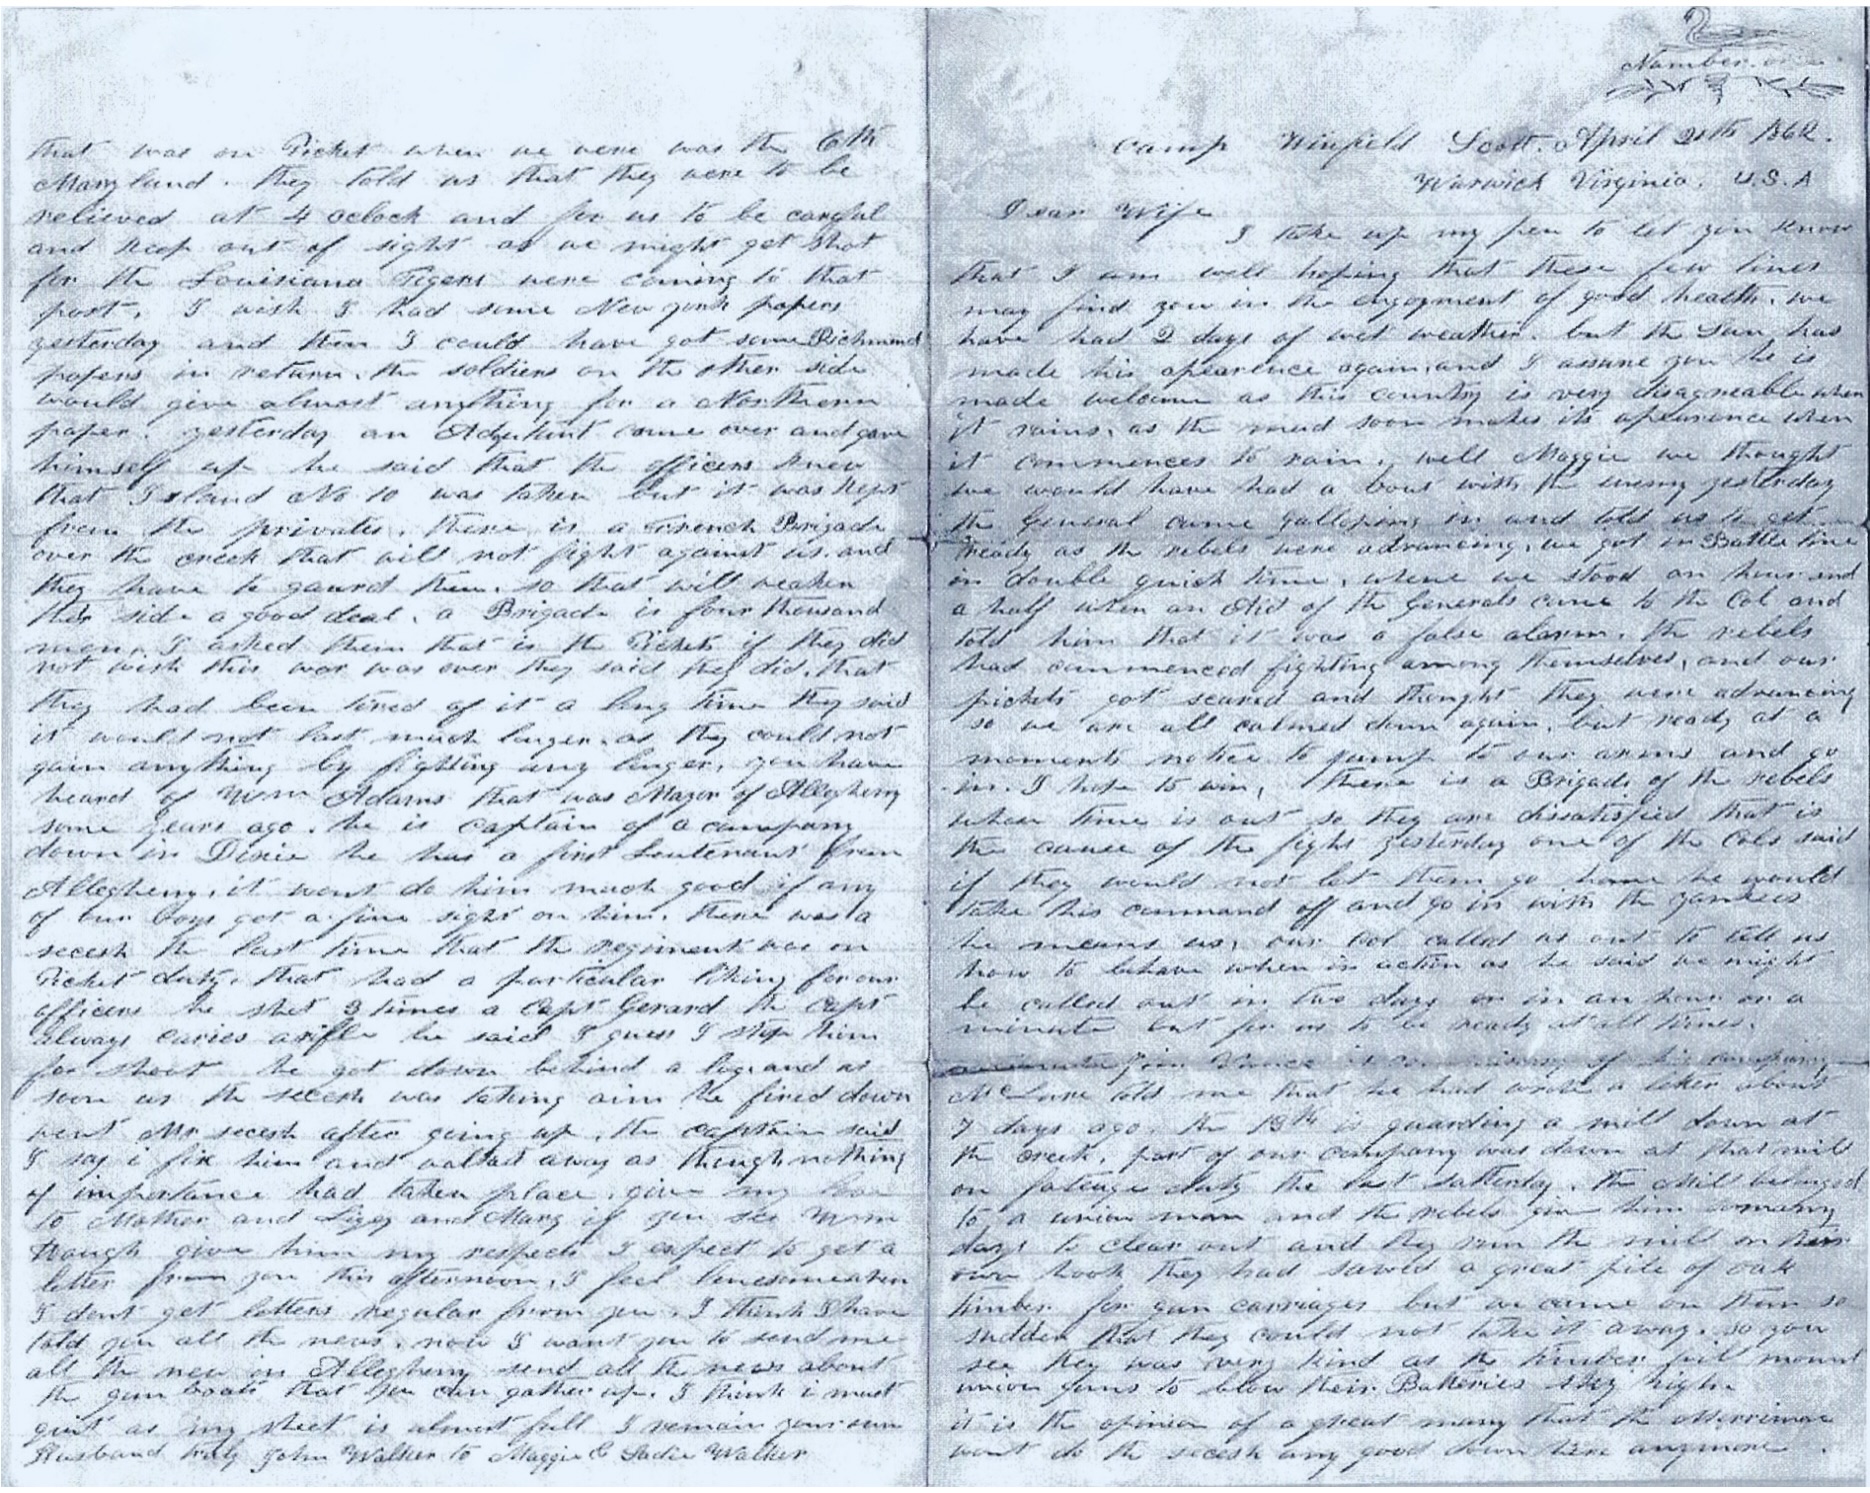 Number
Camp Winfield Scott. April 20th 1862.
Warwick Virginia. U.S.A
Dear Wife
I take up my pen to let you know
that I am well hoping that these few lines
may find you in the engoyment of good health. we
have had 2 days of wet weather. but the Sun has
made his apearence again, and I assure you he is
made welcome as this country is very disagreable when
it rains, as the mud soon makes its apearance when
it commences to rain. well Maggie we thought
we would have had a bout with the enemy yesterday
the General came galloping in and told us to get
ready as the rebels were advancing, we got in Battle line
in double quick time, where we stood an hour and
a half when an Aid of the Generals came to the Col and
told him that it was a false alarm. the rebels
had commenced fighting among themselves, and our
pickets got scared and thought they were advancing
so we are all calmed down again. but ready at a
moments notice to jump to our arms and go
in. I hope to win, there is a Brigade of the rebels
whose time is out so they are dissatisfied that is
the cause of the fight yesterday one of the Cols said
if they would not let them go home he would
take his command off and go in with the yankees
he means us, our Col called us out to tell us
how to behave when in action as he said we might
be called out in two days or in an hour or a
minute but for us to be ready at all times.
Jim Vance is commissary of his company
McClure told me that he had wrote a letter about
7 days ago. the 13th is guarding a mill down at
the creek, part of our company was down at that mill
on fateuge duty the last Satterday. the Mill belonged
to a union man and the rebels give him so many
days to clear out and they run the mill on their
own hook they had sawed a great pile of oak
timber for gun carriages but we came on them so
sudden that they could not take it away. so you
see they was very kind as the timber will mount
union guns to blow their Batteries sky high.
it is the opinion of a great many that the Merrimac
wont do the secesh any good down here anymore.
that was on Picket when we were was the 6th
Maryland. they told us that they were to be
relieved at 4 oclock and for us to be careful
and keep out of sight as we might get shot
for the Louisiana Tigers were coming to that
post. I wish I had some New york papers
yesterday and then I could have got some Richmond
papers in return. the soldiers on the other side
would give almost anything for a Northern
paper. yesterday an Adjutint came over and gave
himself up he said that the officers knew
that Island No 10 was taken but it was kept
from the privates. there is a French Brigade
over the creek that will not fight against us. and
they have to gaurd them. so that will weaken
their side a good deal. a Brigade is four thousand
men. I asked them that is the Pickets if they did
not wish this war was over they said they did. that
they had been tired of it a long time they said
it would not last much longer. as they could not
gain anything by fighting any longer. you have
heard of Wm Adams that was Mayor of Allegheny
some years ago. he is captain of a company
down in Dixie he has a first Leutenant from
Allegheny. it wont do him much good if any
of our boys get a fine sight on him. there was a
secesh the last time that the regiment was on
Picket duty. that had a particular liking for our
officers he shot 3 times a Capt Gerard the Capt
always caries a rifle he said I guess I stop him
for shoot he got down behind a log and as
soon as the secesh was taking aim he fired down
went Mr secesh after going up. the captain said
I say i fix him and walked away as though nothing
of importance had taken place. give my love
to Mother and Lizey and Mary if you see Wm
Waugh give him my respects I expect to get a
letter from you this afternoon. I feel lonesome when
I dont get letters regular from you. I think I have
told you all the news. now I want you to send me
all the new in Allegheny send all the news about
the gun boats that you can gather up. I think i must
quit as my sheet is almost full I remain your own
Husband truly John Walker to Maggie & Sadie Walker